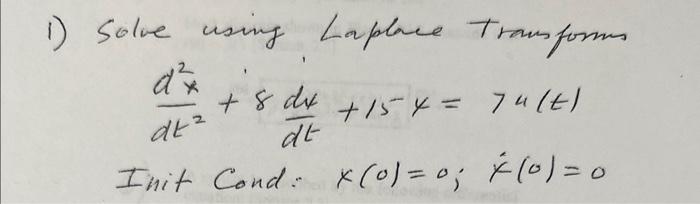 1) Solve using Laplace Transforms
d²x/dt² + 8 dx/dt + 15 x = 7 u(t)
Init Cond: x(0) = 0; ẋ(0) = 0